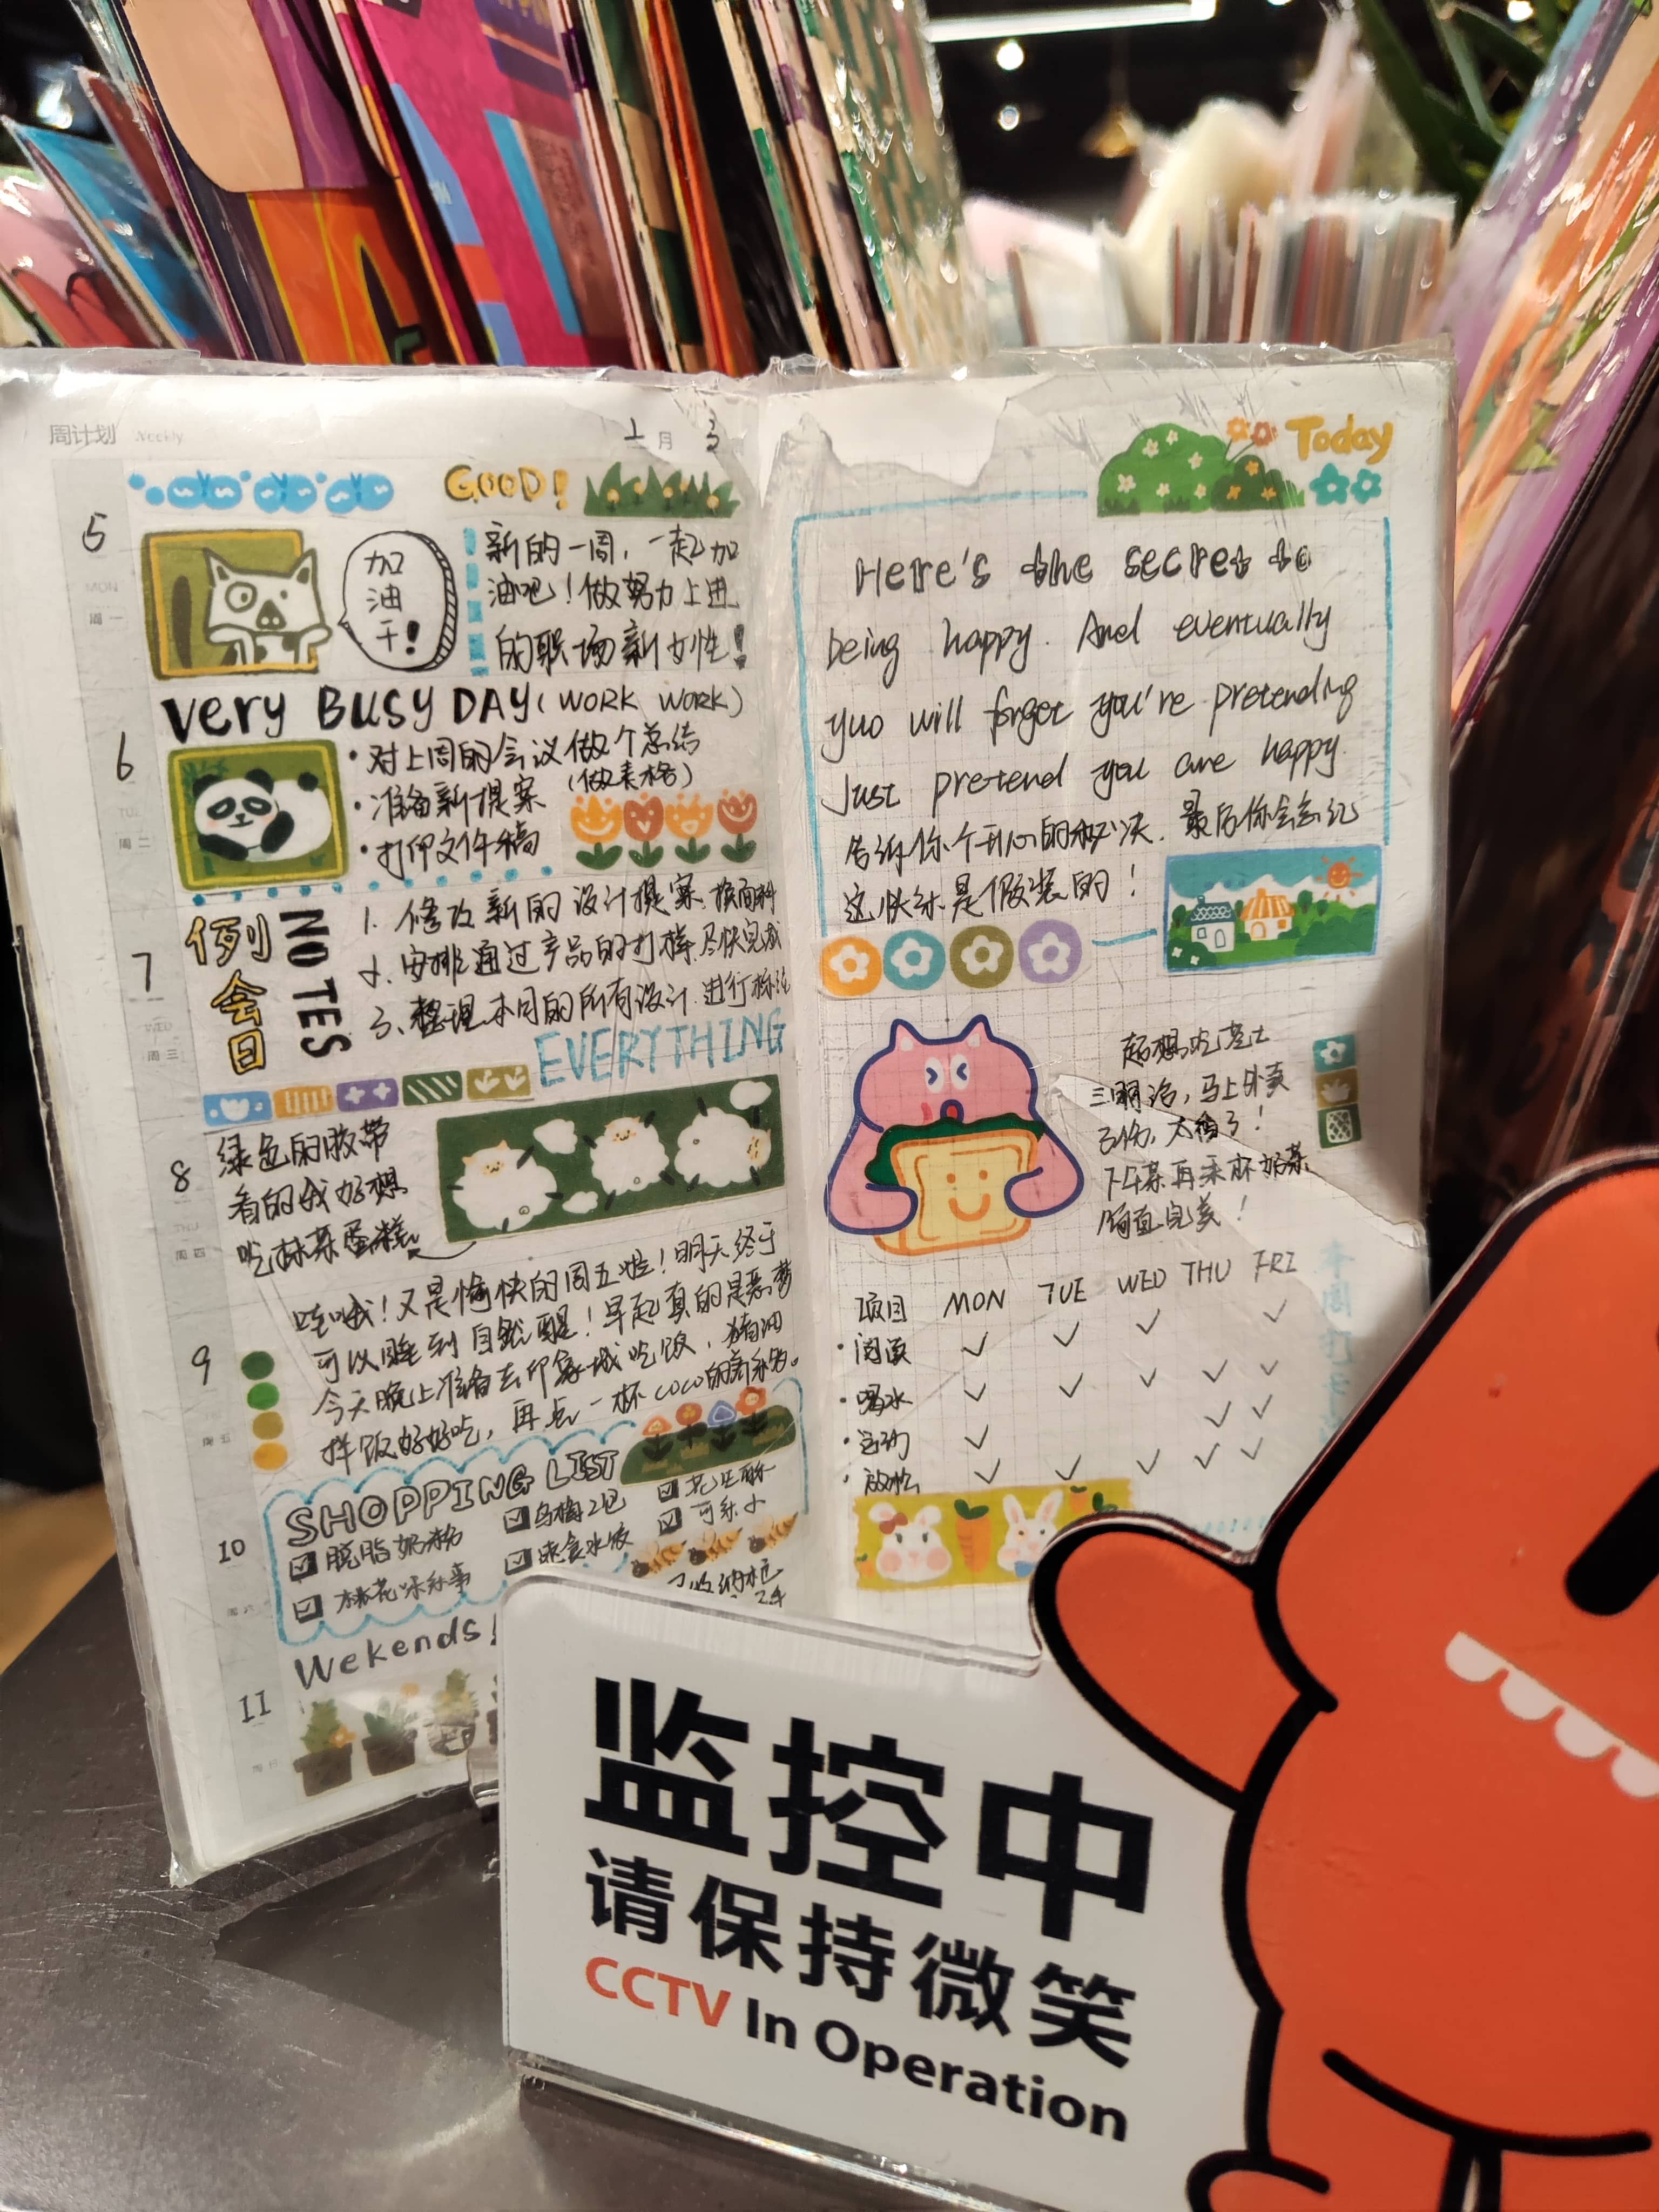 周计划 Weekly
月
GOOD!
5
MON
周一
加
油
干!
新的一周,一起加
油吧!做努力上进
的职场新女性!
Very BUSY DAY(WORK WORK)
6
TUE
周二
·对上周的会议做个总结
(做表格)
·准备新提案
·打印文件稿
7
WED
周三
例会日
NOTES
1. 修改新的设计提案.换面料
2. 安排通过产品的打样.尽快完成
3、整理本周的所有设计.进行标注
EVERYTHING
8
THU
周四
绿色的胶带
看的我好想
吃抹茶蛋糕
9
周五
哇哦!又是愉快的周五啦!明天终于
可以睡到自然醒!早起真的是恶梦
今天晚上准备去印象城吃饭,猪油
拌饭好好吃,再点一杯COCO的
SHOPPING LIST
10
脱脂奶粉
乌梅2包
花生酥
可乐
速食水饺
收纳柜
Wekends!
11
Today
Here's the secret to
being happy. And eventually
yuo will forget you're pretending
Just pretend you are happy.
告诉你个开心的秘决.最后你会忘记
这快乐是假装的!
超想吃芝士
三明治,马上外卖
3份,太香了!
下午茶再来杯奶茶
简直完美!
项目 MON TUE WED THU FRI
·阅读 ✓ ✓ ✓ ✓
·喝水 ✓ ✓ ✓ ✓ ✓
·运动 ✓ ✓ ✓
·放松 ✓ ✓ ✓ ✓ ✓
监控中
请保持微笑
CCTV In Operation